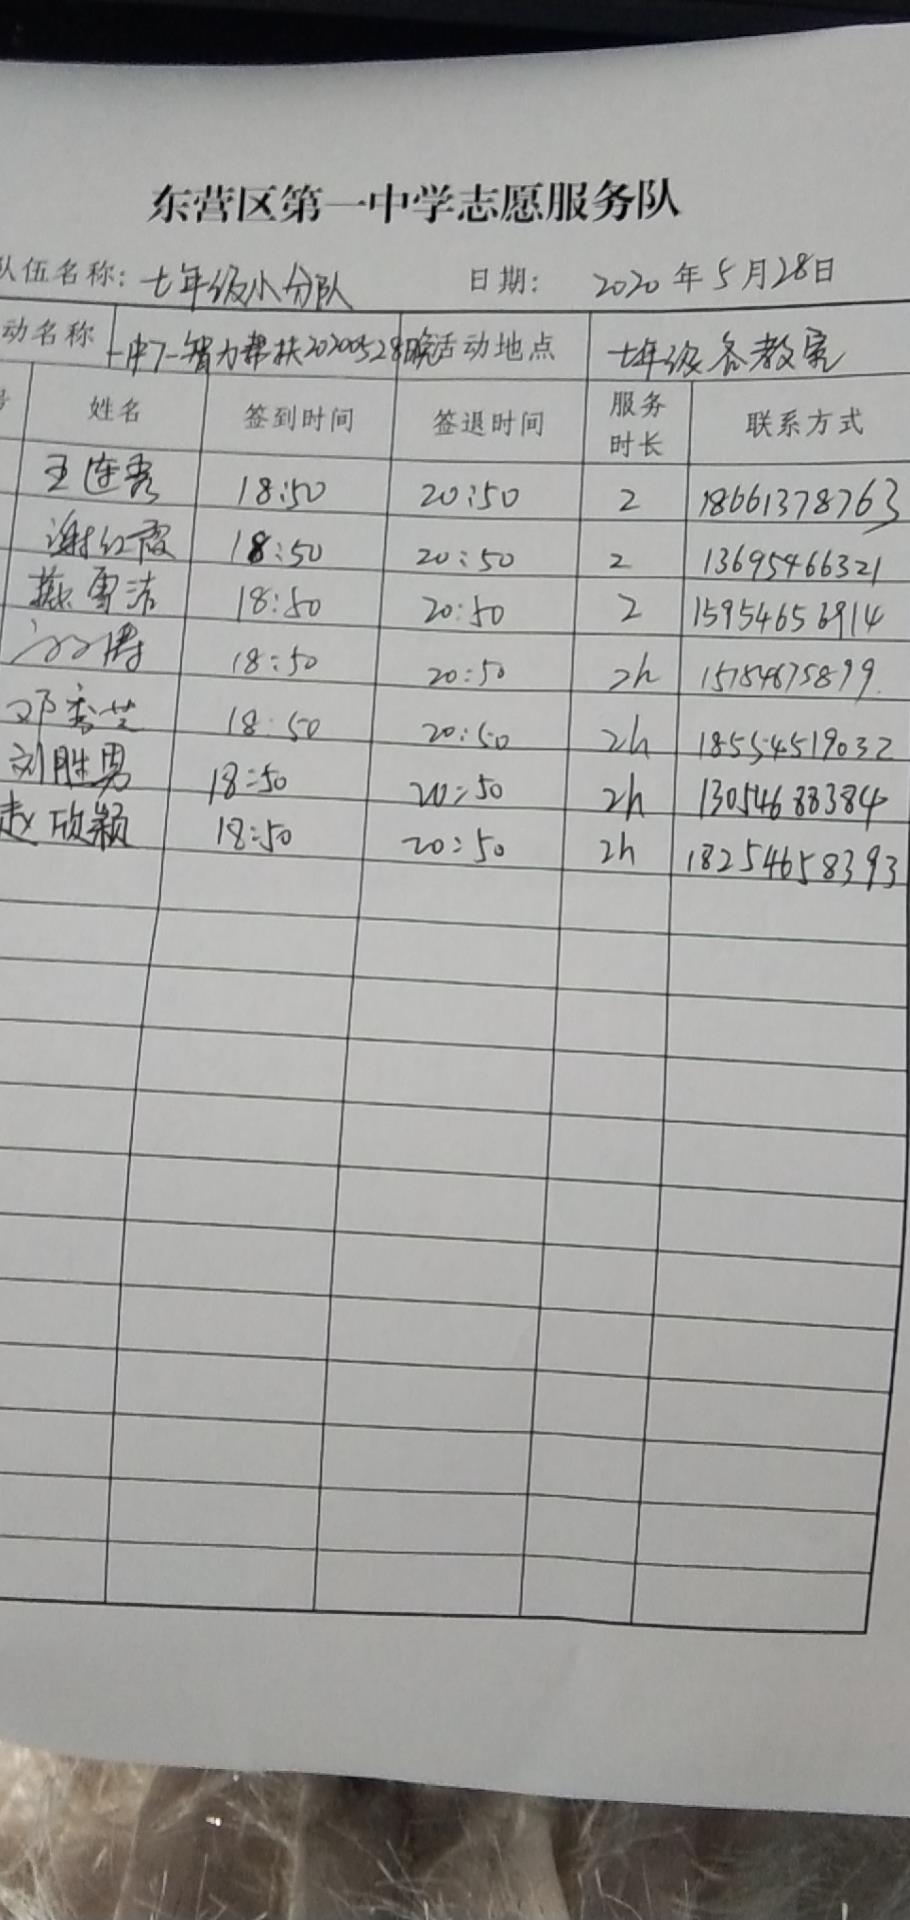 东营区第一中学志愿服务队
队伍名称: 七年级小分队 日期: 2020年5月28日
动名称 一中7-智力帮扶20200528晚 活动地点 七年级各教室
号 姓名 签到时间 签退时间 服务时长 联系方式
王连秀 18:50 20:50 2 18661378763
谢红霞 18:50 20:50 2 13695466321
燕雪洁 18:50 20:50 2
18:50 20:50 2h
邓秀芝 18:50 20:50 2h 18554519032
刘胜男 18:50 20:50 2h 13054688384
赵欣颖 18:50 20:50 2h 18254658393